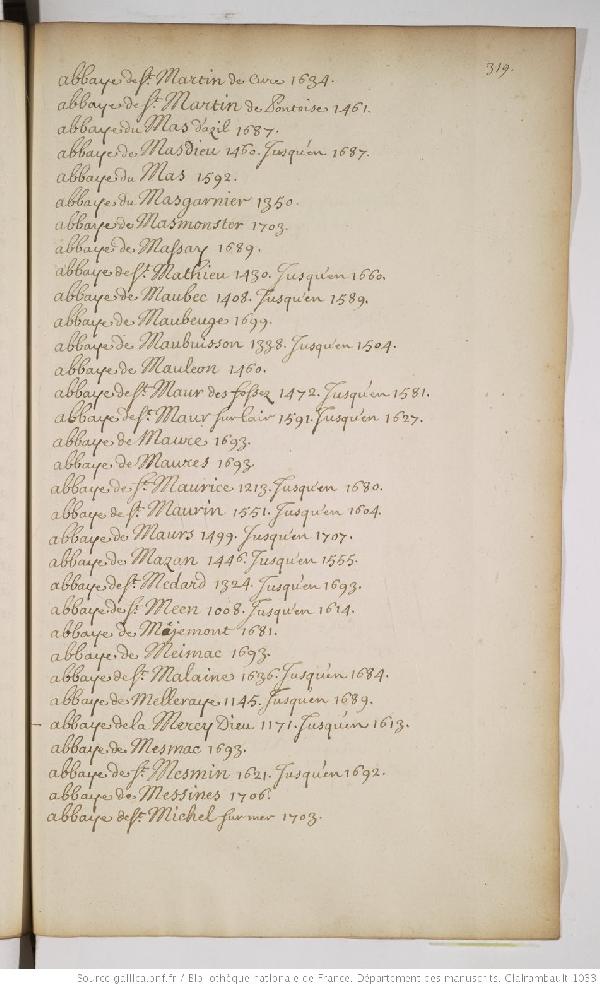 319.
abbaye de St. Martin de Cure 1634.
abbaye de St. Martin de Pontoise 1461.
abbaye du Mas d'azil 1687.
abbaye de Masdieu 1460. Jusqu'en 1687.
abbaye du Mas 1592.
abbaye du Masgarnier 1350.
abbaye de Masmonster 1703.
abbaye de Massay 1689.
abbaye de St. Mathieu 1430. Jusqu'en 1660.
abbaye de Maubec 1408. Jusqu'en 1589.
abbaye de Maubeuge 1699.
abbaye de Maubuisson 1338. Jusqu'en 1504.
abbaye de Mauleon 1460.
abbaye de St. Maur des fossez 1472. Jusqu'en 1581.
abbaye de St. Maur sur Loir 1591. Jusqu'en 1627.
abbaye de Maure 1693.
abbaye de Maures 1693.
abbaye de St. Maurice 1213. Jusqu'en 1680.
abbaye de St. Maurin 1551. Jusqu'en 1604.
abbaye de Maurs 1499. Jusqu'en 1707.
abbaye de Mazan 1446. Jusqu'en 1555.
abbaye de St. Medard 1324. Jusqu'en 1693.
abbaye de St. Meen 1008. Jusqu'en 1614.
abbaye de Mejemont 1681.
abbaye de Meimac 1693.
abbaye de St. Malaine 1636. Jusqu'en 1684.
abbaye de Melleraye 1145. Jusqu'en 1689.
abbaye de la Mercy Dieu 1171. Jusqu'en 1613.
abbaye de Mesmac 1693.
abbaye de St. Mesmin 1621. Jusqu'en 1692.
abbaye de Messines 1706.
abbaye de St. Michel sur mer 1703.
Source gallica.bnf.fr / Bibliothèque nationale de France. Département des manuscrits. Clairambault 1033